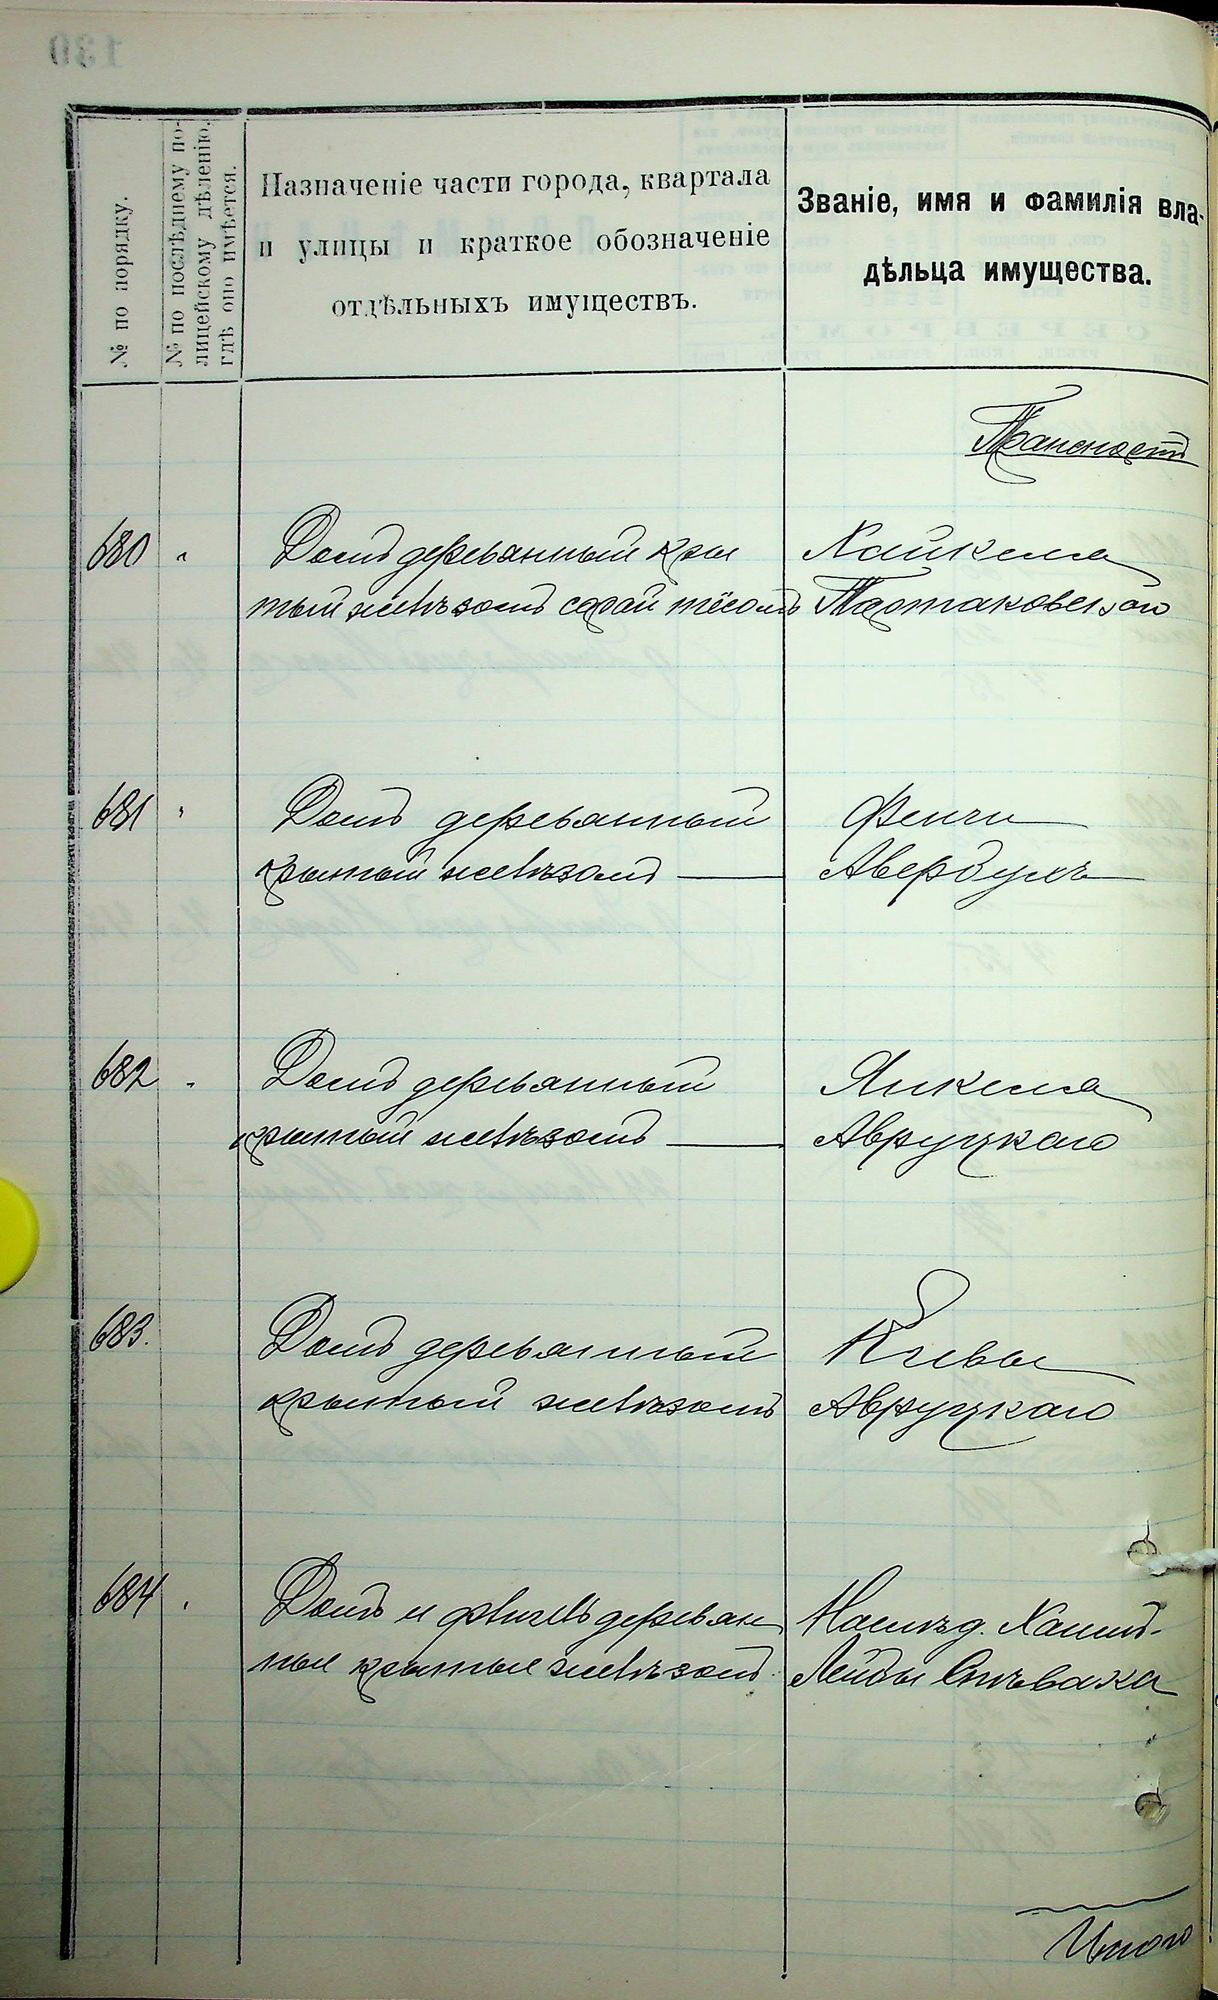 130
№ по порядку.
№ по послѣднему по-
лицейскому дѣленію,
гдѣ оно имѣется.
Назначеніе части города, квартала
и улицы и краткое обозначеніе
отдѣльныхъ имуществъ.
Званіе, имя и фамилія вла-
дѣльца имущества.
Транспортъ
680 " Домъ деревянный кры Хайкеля
тый желѣзомъ сарай тёсомъ Партаковскаго
681 " Домъ деревянный
крытый желѣзомъ — Авербухъ
682 " Домъ деревянный Янкеля
крытый желѣзомъ — Авруцкаго
683. Домъ деревянный Кивы
крытый желѣзомъ Авруцкаго
684 " Домъ и флигель деревян Наслѣд. Хаимъ-
ные крытые желѣзомъ Лейбы Спѣвака
Итого